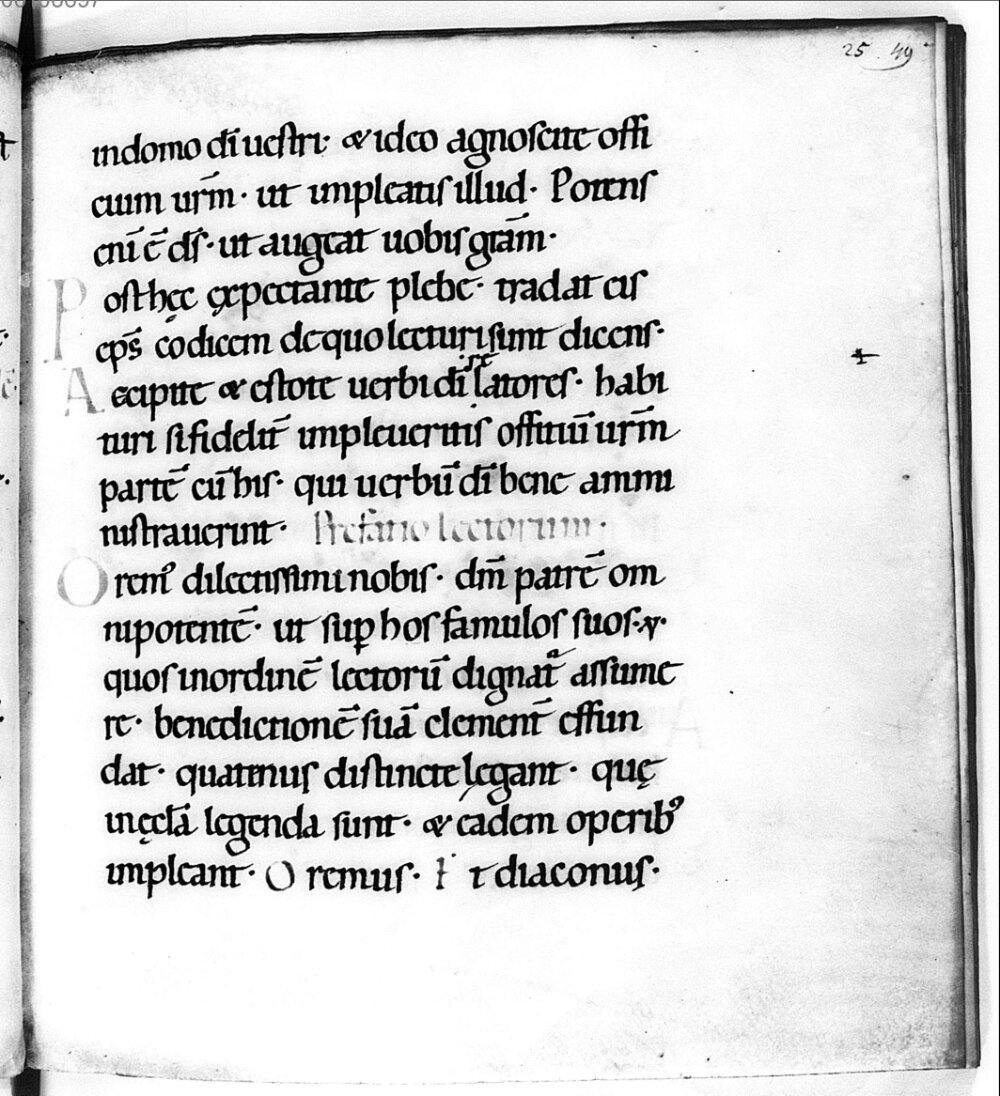 25 49
indomo dī uestri· & ideo agnoscite offi
cium urm̄· ut impleatis illud· Potens
enī ē ds̄· ut augeat uobis grām̄·
Post hęc ęxpectante plebe· tradat eis
ep̄s codicem de quo lecturi sunt dicens·
Accipite & estote uerbi dī latores· habi
turi si fidelit̄ impleueritis offitiū urm̄
partē cū his· qui uerbū dī bene ammi
nistrauerint· Prefatio lectorum·
Orem᾽ dilectissimi nobis· dm̄ patrē om
nipotentē· ut sup̲ hos famulos suos·
quos in ordinē lectorū dignat᷑ assume
re· benedictionē suā clement̄ effun
dat· quatinus distincte lęgant· quę
in ęcl̄ā legenda sunt· & eadem operib᾽
impleant· Oremus· Et diaconus·